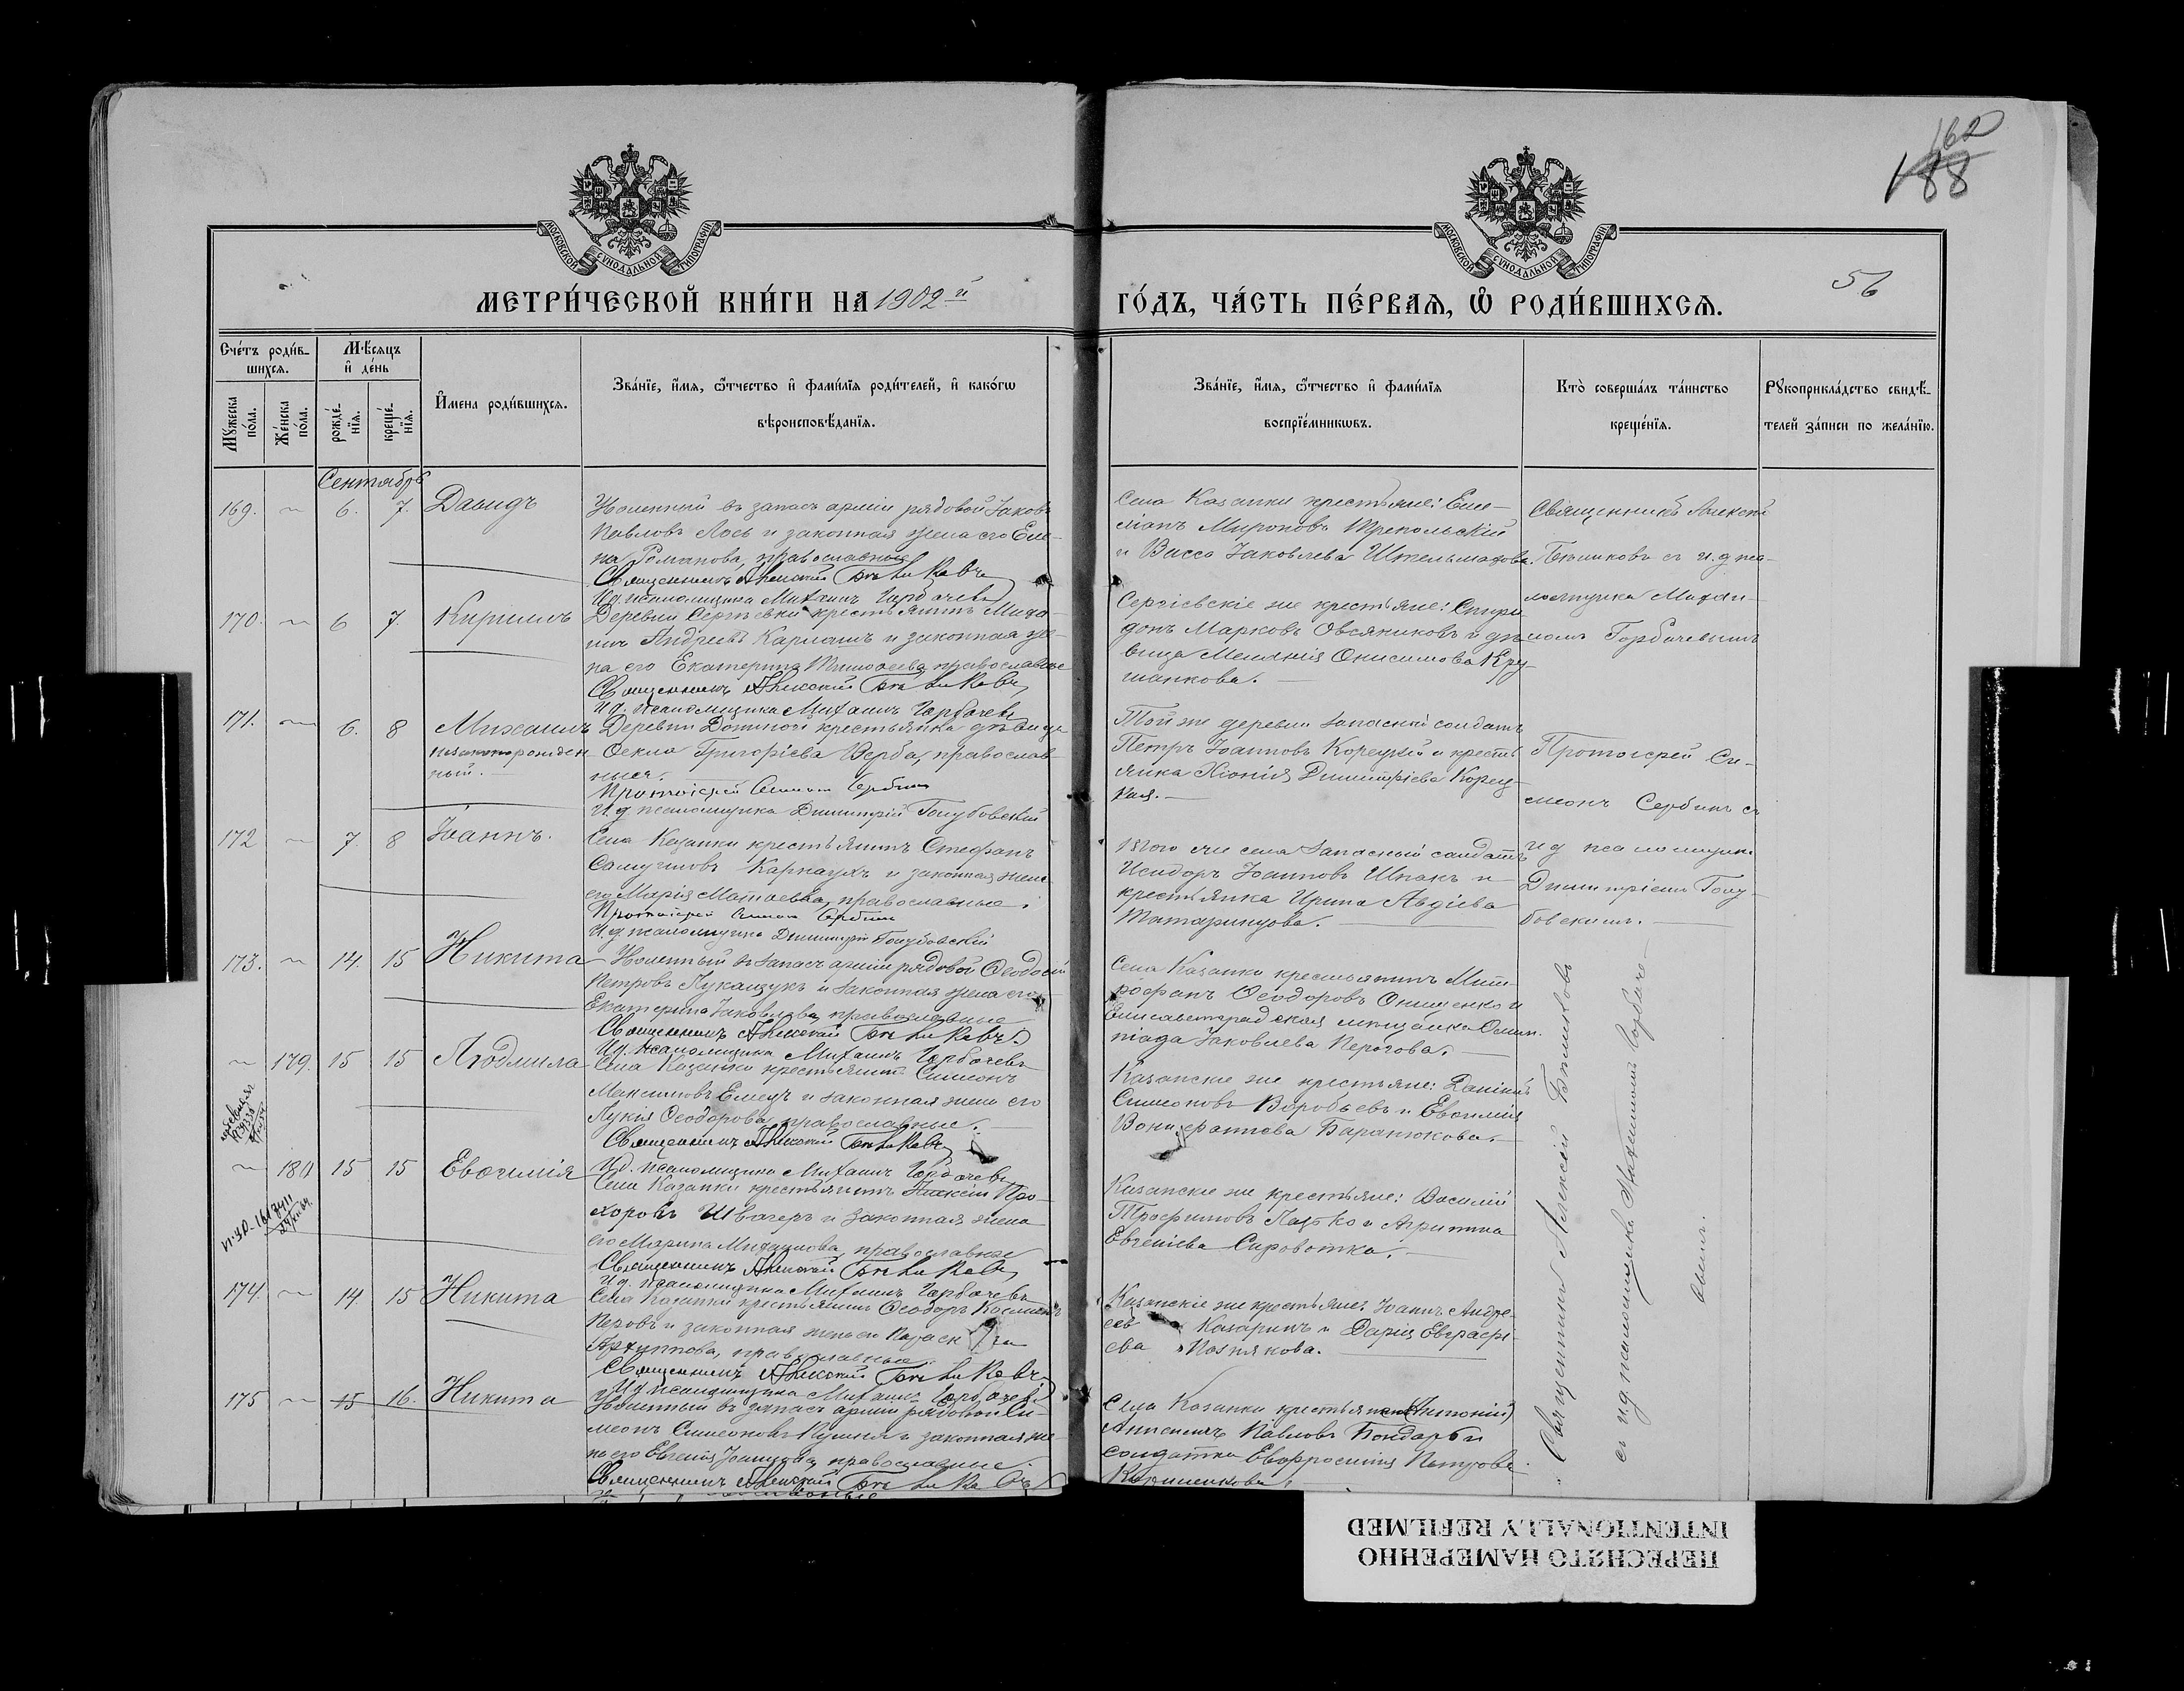 160
188
МОСКОВСКОЙ СѴНОДАЛЬНОЙ ТИПОГРАФІИ
МОСКОВСКОЙ СѴНОДАЛЬНОЙ ТИПОГРАФІИ
56
МЕТРИ́ЧЕСКОЙ КНИ́ГИ НА 1902й
ГО́ДЪ, ЧА́СТЬ ПЕ́РВАѦ, Ѽ РОДИ́ВШИХСѦ.
Сче́тъ роди́в-
шихсѧ.
Мꙋ́жеска по́ла.
Же́нска по́ла.
Мѣ́сѧцъ
и҆ де́нь
рожде́-
нїѧ.
креще́-
нїѧ.
И҆мена роди́вшихсѧ.
Зва́нїе, и҆́мѧ, ѻ҆́тчество и҆ фами́лїѧ роди́телей, и҆ како́гѡ
вѣроисповѣ́данїѧ.
Зва́нїе, и҆́мѧ, ѻ҆́тчество и҆ фами́лїѧ
воспрїе́мникѡвъ.
Кто̀ соверша́лъ та́инство
креще́нїѧ.
Рꙋкоприкла́дство свидѣ́-
телей за́писи по жела́нїю.
Сентябрь
169. 6. 7. Давидъ
Уволенный въ запасъ арміи рядовой Іаковъ
Павловъ Лось и законная жена его Еле-
на Романова, православные
Священникъ Алексій
И.д. псаломщика Михаилъ Горбачевъ
Села Казанки крестьяне: Еме-
ліанъ Мироновъ
и Васса Іаковлева
Священникъ Алексій
съ и.д. пса-
ломщика Михаи-
ломъ Горбачевымъ
170. 6 7. Кириллъ
Деревни Сергѣевки крестьянинъ Миха-
илъ Андреевъ и законная же-
на его Екатерина Тимоѳеева, православные
Священникъ Алексій
И.д. псаломщика Михаилъ Горбачевъ
Сергіевскіе же крестьяне: Спири-
донъ Марковъ Овсяниковъ и дѣ-
вица Меланія Онисимова
171. 6. 8 Михаилъ
незаконорожден
ный.
Деревни крестьянка дѣвица
Ѳекла Григоріева Верба, православ-
ныя.
Протоіерей Симеонъ Сербинъ
И.д. псаломщика Димитрій Голубовскій
Той же деревни запасной солдатъ
Петръ Іоанновъ Корецкій и кресть-
янка Хіонія Димитріева Корец-
кая.
Протоіерей Си-
меонъ Сербинъ съ
и.д. псаломщика
Димитріемъ Голу-
бовскимъ.
172 7. 8 Іоаннъ.
Села Казанки крестьянинъ Стефанъ
Самуиловъ Карнаухъ и законная жена
его Марія Матѳеева, православные.
Протоіерей Симеонъ Сербинъ
И.д. псаломщика Димитрій Голубовскій
того же села запасный солдатъ
Исидоръ Іоанновъ Шпакъ и
крестьянка Ирина Авдіева
Татаринцова.
173. 14. 15 Никита
Уволенный въ запасъ арміи рядовой Ѳеодосій
Петровъ Лукащукъ и законная жена его
Екатерина Іаковлева, православные
Священникъ Алексій
И.д. псаломщика Михаилъ Горбачевъ
Села Казанки крестьянинъ Мит-
рофанъ Ѳеодоровъ Онищенко и
Елисаветградская мѣщанка Олим-
піада Іаковлева Перогова.
179. 15 15 Людмила
Села Казанки крестьянинъ Симеонъ
Максимовъ Емецъ и законная жена его
Лукія Ѳеодорова, православные.
Священникъ Алексій
И.д. псаломщика Михаилъ Горбачевъ
Казанскіе же крестьяне: Даніилъ
Симеоновъ Воробьевъ и Евѳимія
Вонифатіова Баранюкова.
180 15 15 Евѳимія
Села Казанки крестьянинъ Алексій Про-
хоровъ Швачеръ и законная жена
его Марина Михаилова, православные
Священникъ Алексій
И.д. псаломщика Михаилъ Горбачевъ
Казанскіе же крестьяне: Василій
Трофимовъ и Агрипина
Евгеніева Сироватка.
174 14. 15 Никита
Села Казанки крестьянинъ Ѳеодоръ
и законная жена его
православные.
Священникъ Алексій
И.д. псаломщика Михаилъ Горбачевъ
Казанскіе же крестьяне: Іоаннъ Андре-
евъ Казаринъ и Дарія Евграфі-
ева Познякова.
175 15 16. Никита
Уволенный въ запасъ арміи рядовой Си-
меонъ Симеоновъ и законная же-
на его Евгенія православные.
Священникъ Алексій
Села Казанки крестьянинъ (Антоній)
Павловъ Бондарь и
солдатка Евфросинія Петрова
Священникъ Алексій
съ и.д. псаломщика Михаиломъ Горбаче-
вымъ.
ПЕРЕСНЯТО НАМЕРЕННО
INTENTIONALLY REFILMED